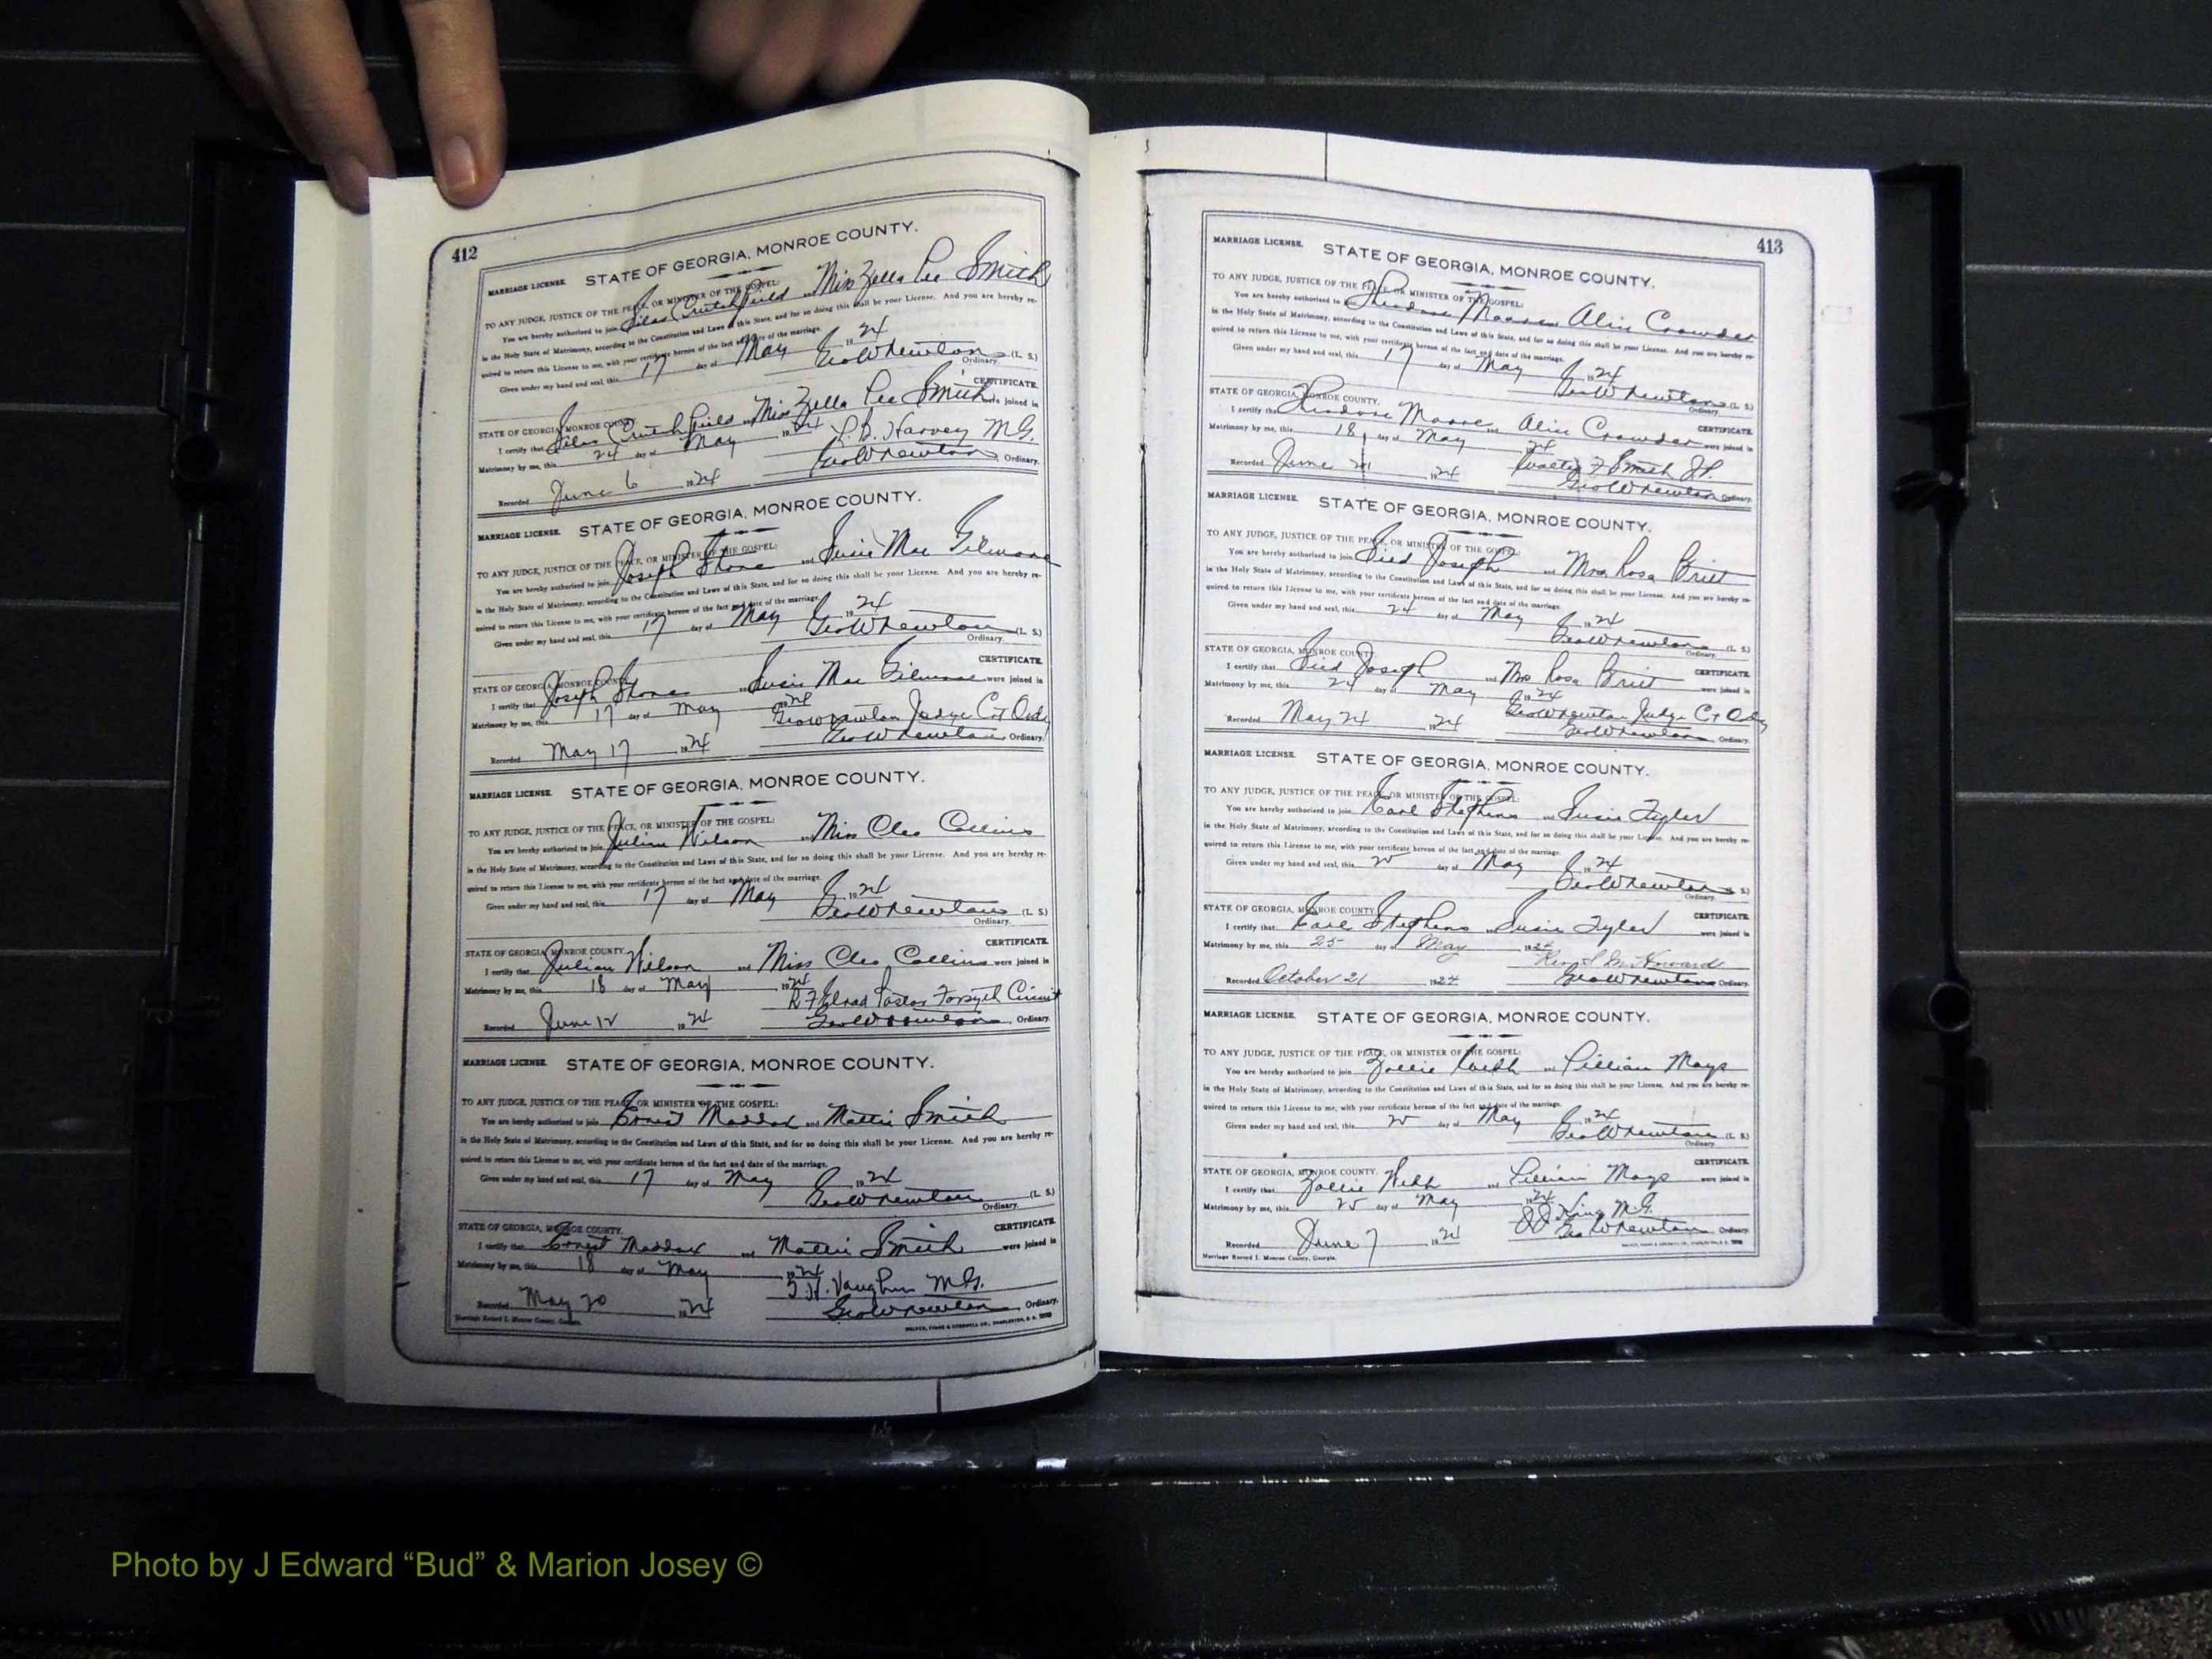 412
MARRIAGE LICENSE. STATE OF GEORGIA, MONROE COUNTY.
TO ANY JUDGE, JUSTICE OF THE PEACE, OR MINISTER OF THE GOSPEL:
You are hereby authorized to join Silas Crutchfield and Miss Zella Lee Smith
in the Holy State of Matrimony, according to the Constitution and Laws of this State, and for so doing this shall be your License. And you are hereby re-
quired to return this License to me, with your certificate hereon of the fact and date of the marriage.
Given under my hand and seal, this 17 day of May 1924
Geo W Newton (L. S.)
Ordinary.
CERTIFICATE.
STATE OF GEORGIA, MONROE COUNTY.
I certify that Silas Crutchfield and Miss Zella Lee Smith were joined in
Matrimony by me, this 24 day of May 1924
L. B. Harvey M.G.
Recorded June 6 1924 Geo W Newton, Ordinary.
MARRIAGE LICENSE. STATE OF GEORGIA, MONROE COUNTY.
TO ANY JUDGE, JUSTICE OF THE PEACE, OR MINISTER OF THE GOSPEL:
You are hereby authorized to join Joseph and Susie Mae Gilmore
in the Holy State of Matrimony, according to the Constitution and Laws of this State, and for so doing this shall be your License. And you are hereby re-
quired to return this License to me, with your certificate hereon of the fact and date of the marriage.
Given under my hand and seal, this 17 day of May 1924
Geo W Newton (L. S.)
Ordinary.
CERTIFICATE.
STATE OF GEORGIA, MONROE COUNTY.
I certify that Joseph and Susie Mae Gilmore were joined in
Matrimony by me, this 17 day of May 1924
Geo W Newton Judge Ct Ordy
Recorded May 17 1924 Geo W Newton, Ordinary.
MARRIAGE LICENSE. STATE OF GEORGIA, MONROE COUNTY.
TO ANY JUDGE, JUSTICE OF THE PEACE, OR MINISTER OF THE GOSPEL:
You are hereby authorized to join Julian Wilson and Miss Cleo Collins
in the Holy State of Matrimony, according to the Constitution and Laws of this State, and for so doing this shall be your License. And you are hereby re-
quired to return this License to me, with your certificate hereon of the fact and date of the marriage.
Given under my hand and seal, this 17 day of May 1924
Geo W Newton (L. S.)
Ordinary.
CERTIFICATE.
STATE OF GEORGIA, MONROE COUNTY.
I certify that Julian Wilson and Miss Cleo Collins were joined in
Matrimony by me, this 18 day of May 1924
R F Elrod Pastor Forsyth Circuit
Recorded June 12 1924 Geo W Newton, Ordinary.
MARRIAGE LICENSE. STATE OF GEORGIA, MONROE COUNTY.
TO ANY JUDGE, JUSTICE OF THE PEACE, OR MINISTER OF THE GOSPEL:
You are hereby authorized to join Ernest Maddox and Mattie Smith
in the Holy State of Matrimony, according to the Constitution and Laws of this State, and for so doing this shall be your License. And you are hereby re-
quired to return this License to me, with your certificate hereon of the fact and date of the marriage.
Given under my hand and seal, this 17 day of May 1924
Geo W Newton (L. S.)
Ordinary.
CERTIFICATE.
STATE OF GEORGIA, MONROE COUNTY.
I certify that Ernest Maddox and Mattie Smith were joined in
Matrimony by me, this 18 day of May 1924
Vaughn M.G.
Recorded May 20 1924 Geo W Newton, Ordinary.
Marriage Record I. Monroe County, Georgia.
WALKER, EVANS & COGSWELL CO., CHARLESTON, S. C.
413
MARRIAGE LICENSE. STATE OF GEORGIA, MONROE COUNTY.
TO ANY JUDGE, JUSTICE OF THE PEACE, OR MINISTER OF THE GOSPEL:
You are hereby authorized to join Theodore Moore Alice Crowder
in the Holy State of Matrimony, according to the Constitution and Laws of this State, and for so doing this shall be your License. And you are hereby re-
quired to return this License to me, with your certificate hereon of the fact and date of the marriage.
Given under my hand and seal, this 17 day of May 1924
Geo W Newton (L. S.)
Ordinary.
STATE OF GEORGIA, MONROE COUNTY.
CERTIFICATE.
I certify that Theodore Moore and Alice Crowder were joined in
Matrimony by me, this 18 day of May 1924
Walter F Smith J.P.
Recorded June 21 1924 Geo W Newton Ordinary.
MARRIAGE LICENSE. STATE OF GEORGIA, MONROE COUNTY.
TO ANY JUDGE, JUSTICE OF THE PEACE, OR MINISTER OF THE GOSPEL:
You are hereby authorized to join Sied Joseph and Mrs Rosa Britt
in the Holy State of Matrimony, according to the Constitution and Laws of this State, and for so doing this shall be your License. And you are hereby re-
quired to return this License to me, with your certificate hereon of the fact and date of the marriage.
Given under my hand and seal, this 24 day of May 1924
Geo W Newton (L. S.)
Ordinary.
STATE OF GEORGIA, MONROE COUNTY.
CERTIFICATE.
I certify that Sied Joseph and Mrs Rosa Britt were joined in
Matrimony by me, this 24 day of May 1924
Geo W Newton Judge Ct Ordy
Recorded May 24 1924 Geo W Newton, Ordinary.
MARRIAGE LICENSE. STATE OF GEORGIA, MONROE COUNTY.
TO ANY JUDGE, JUSTICE OF THE PEACE, OR MINISTER OF THE GOSPEL:
You are hereby authorized to join Earl Stephens and Susie Tyler
in the Holy State of Matrimony, according to the Constitution and Laws of this State, and for so doing this shall be your License. And you are hereby re-
quired to return this License to me, with your certificate hereon of the fact and date of the marriage.
Given under my hand and seal, this 25 day of May 1924
Geo W Newton (L. S.)
Ordinary.
STATE OF GEORGIA, MONROE COUNTY.
CERTIFICATE.
I certify that Earl Stephens and Susie Tyler were joined in
Matrimony by me, this 25 day of May 1924
Howard
Recorded October 21 1924 Geo W Newton Ordinary.
MARRIAGE LICENSE. STATE OF GEORGIA, MONROE COUNTY.
TO ANY JUDGE, JUSTICE OF THE PEACE, OR MINISTER OF THE GOSPEL:
You are hereby authorized to join Zollie Webb and Lillian Mays
in the Holy State of Matrimony, according to the Constitution and Laws of this State, and for so doing this shall be your License. And you are hereby re-
quired to return this License to me, with your certificate hereon of the fact and date of the marriage.
Given under my hand and seal, this 25 day of May 1924
Geo W Newton (L. S.)
Ordinary.
CERTIFICATE.
STATE OF GEORGIA, MONROE COUNTY.
I certify that Zollie Webb and Lillian Mays were joined in
Matrimony by me, this 25 day of May 1924
King M.G.
Recorded June 7 1924 Geo W Newton Ordinary.
Marriage Record I. Monroe County, Georgia.
WALKER, EVANS & COGSWELL CO., CHARLESTON, S. C.
Photo by J Edward “Bud” & Marion Josey ©